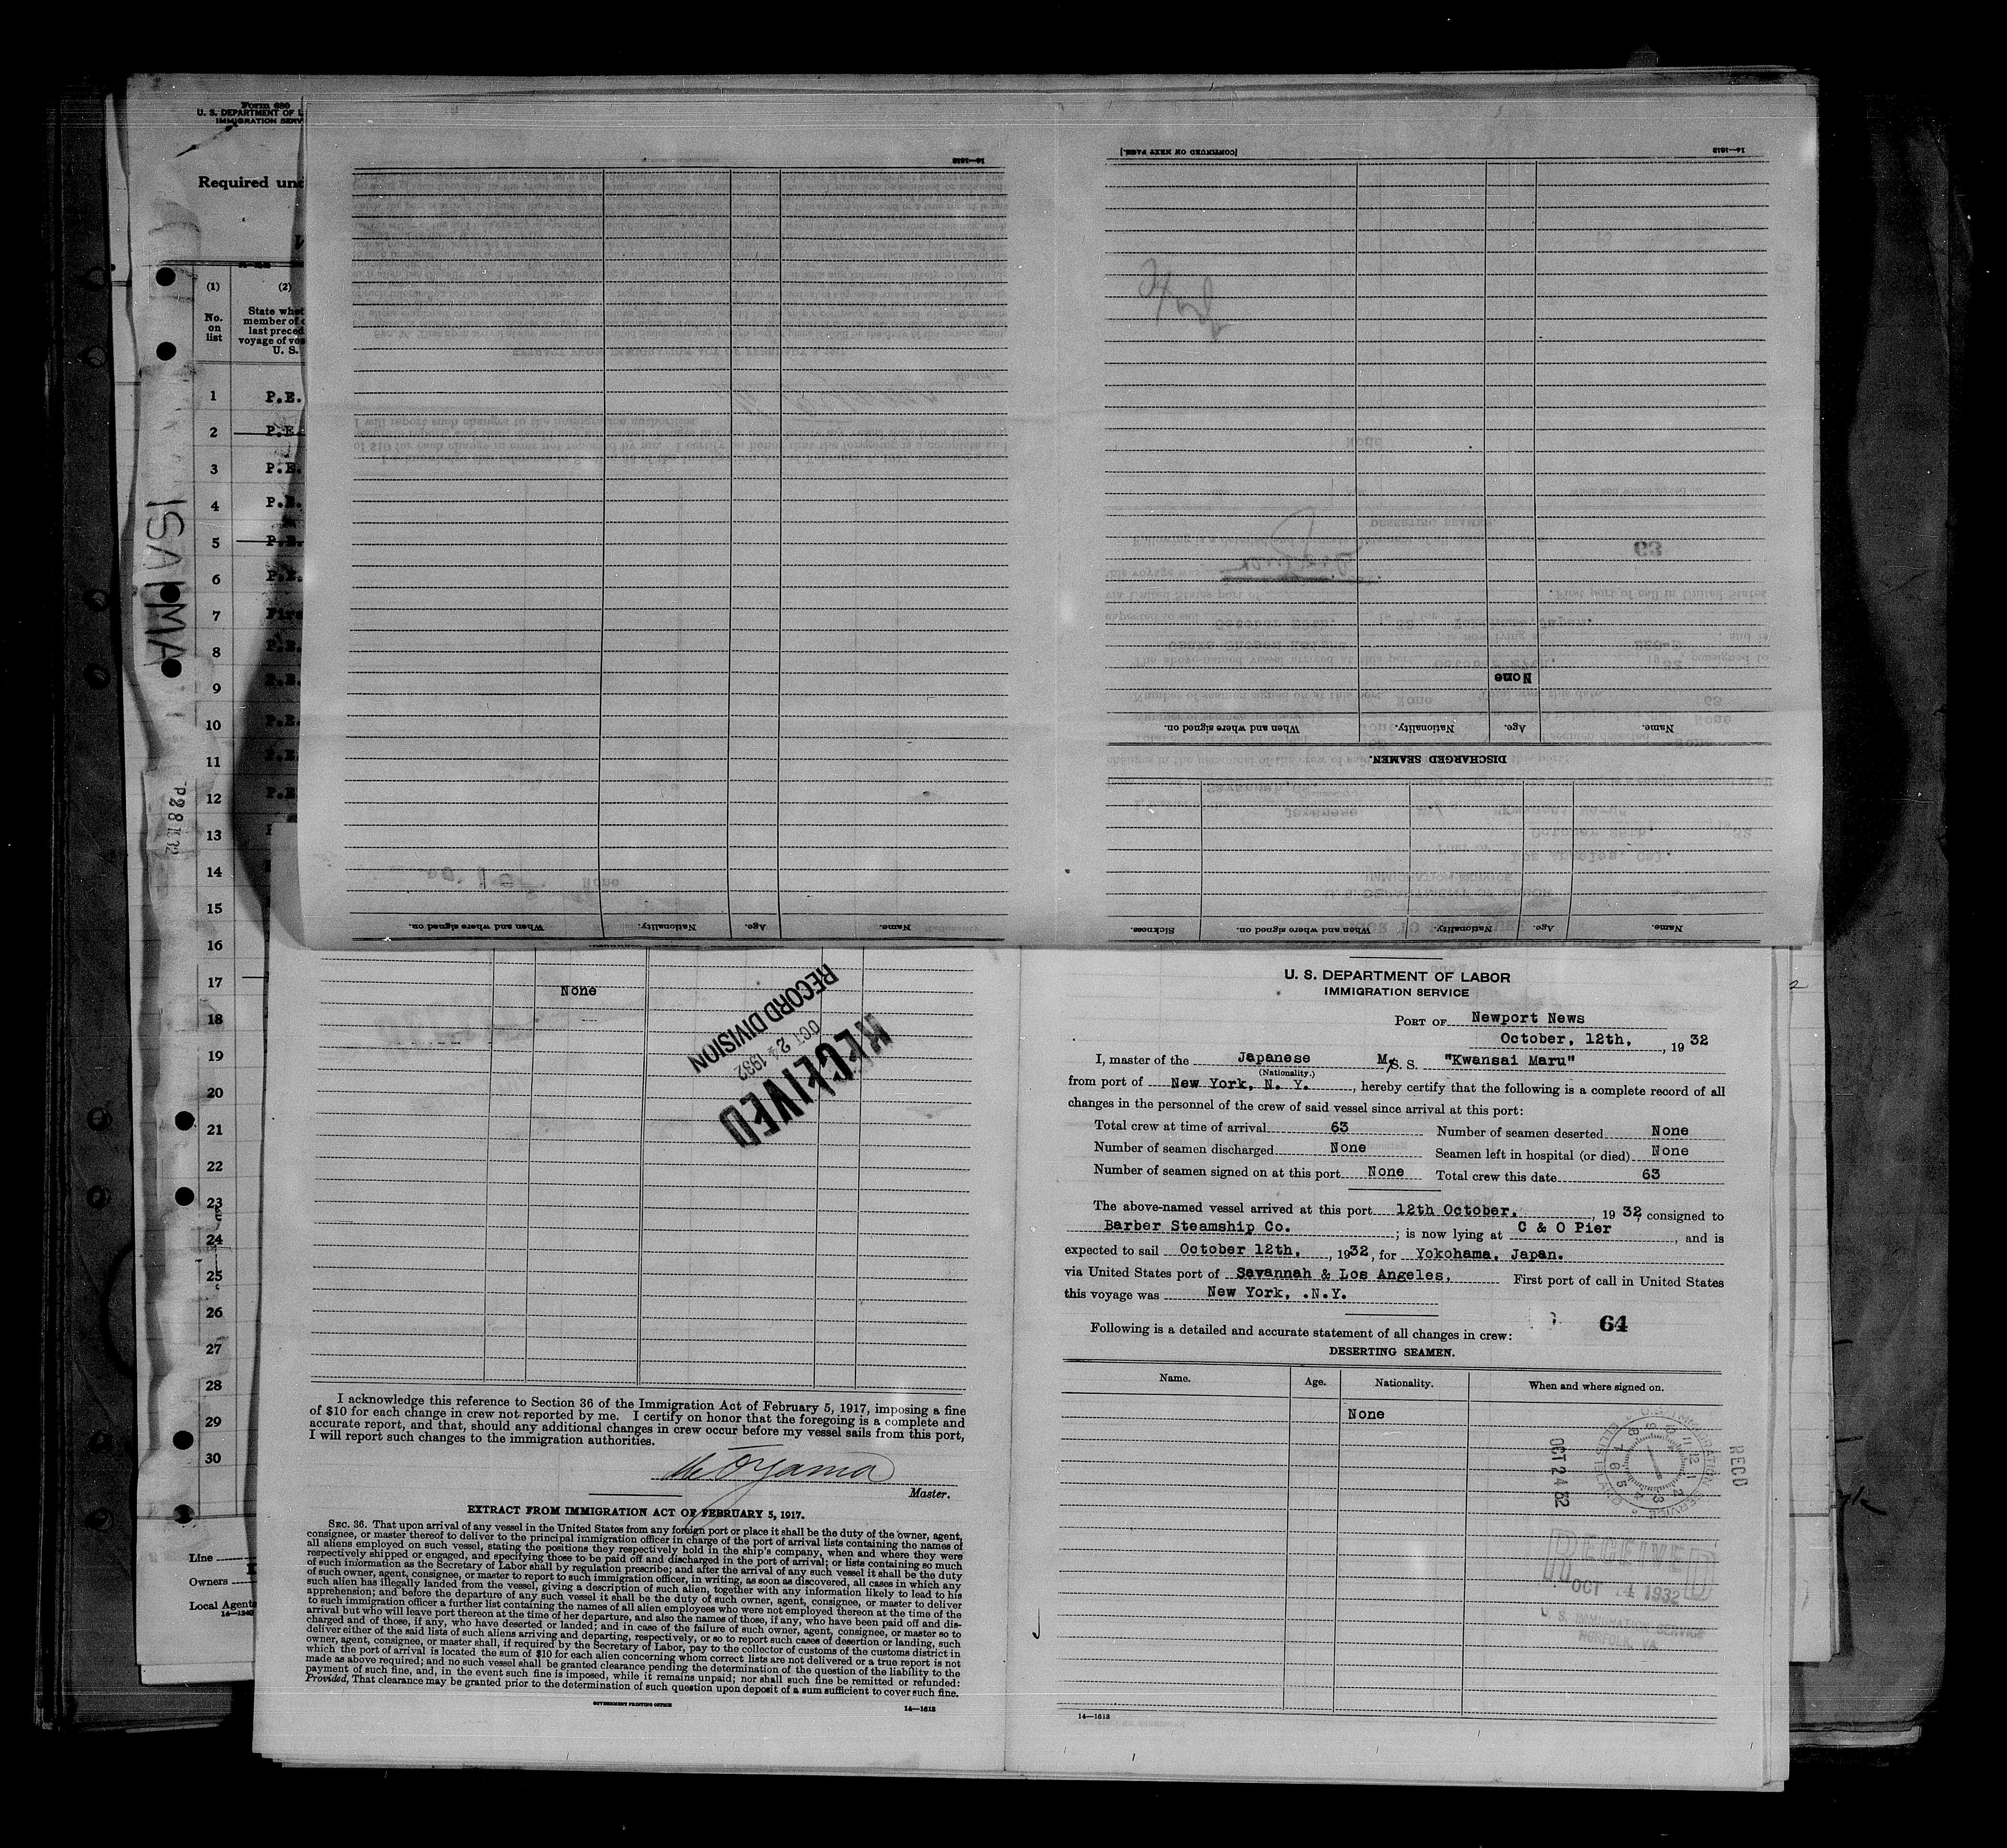 Form 680
U. S. DEPARTMENT OF L
IMMIGRATION SERV
Required und
(1)
(2)
No.
on
list
State whet
member of c
last preced
voyage of ves
U. S.
1 P.E.
2 P.E.
3 P.E.
4 P.E.
5 P.E.
6 P.E.
7 Firs
8 P.E.
9 P.E.
10 P.E.
11 P.E.
12 P.E.
13
14
15
16
17
18
19
20
21
22
23
24
25
26
27
28
29
30
Line
Owners
Local Agents
14—1240
14—1613
Name.
Age.
Nationality.
When and where signed on.
[CONTINUED ON NEXT PAGE.]
14—1613
None
Name.
Age.
Nationality.
When and where signed on.
DISCHARGED SEAMEN.
Name.
Age.
Nationality.
When and where signed on.
Sickness.
None
RECORD DIVISION
OCT 24 1932
RECEIVED
I acknowledge this reference to Section 36 of the Immigration Act of February 5, 1917, imposing a fine
of $10 for each change in crew not reported by me. I certify on honor that the foregoing is a complete and
accurate report, and that, should any additional changes in crew occur before my vessel sails from this port,
I will report such changes to the immigration authorities.
Master.
EXTRACT FROM IMMIGRATION ACT OF FEBRUARY 5, 1917.
SEC. 36. That upon arrival of any vessel in the United States from any foreign port or place it shall be the duty of the owner, agent,
consignee, or master thereof to deliver to the principal immigration officer in charge of the port of arrival lists containing the names of
all aliens employed on such vessel, stating the positions they respectively hold in the ship's company, when and where they were
respectively shipped or engaged, and specifying those to be paid off and discharged in the port of arrival; or lists containing so much
of such information as the Secretary of Labor shall by regulation prescribe; and after the arrival of any such vessel it shall be the duty
of such owner, agent, consignee, or master to report to such immigration officer, in writing, as soon as discovered, all cases in which any
such alien has illegally landed from the vessel, giving a description of such alien, together with any information likely to lead to his
apprehension; and before the departure of any such vessel it shall be the duty of such owner, agent, consignee, or master to deliver
to such immigration officer a further list containing the names of all alien employees who were not employed thereon at the time of the
arrival but who will leave port thereon at the time of her departure, and also the names of those, if any, who have been paid off and dis-
charged and of those, if any, who have deserted or landed; and in case of the failure of such owner, agent, consignee, or master so to
deliver either of the said lists of such aliens arriving and departing, respectively, or so to report such cases of desertion or landing, such
owner, agent, consignee, or master shall, if required by the Secretary of Labor, pay to the collector of customs of the customs district in
which the port of arrival is located the sum of $10 for each alien concerning whom correct lists are not delivered or a true report is not
made as above required; and no such vessel shall be granted clearance pending the determination of the question of the liability to the
payment of such fine, and, in the event such fine is imposed, while it remains unpaid; nor shall such fine be remitted or refunded:
Provided, That clearance may be granted prior to the determination of such question upon deposit of a sum sufficient to cover such fine.
GOVERNMENT PRINTING OFFICE
14—1613
U. S. DEPARTMENT OF LABOR
IMMIGRATION SERVICE
PORT OF Newport News
October, 12th, , 19 32
I, master of the Japanese M/S. S. "Kwansai Maru"
(Nationality.)
from port of New York, N. Y. , hereby certify that the following is a complete record of all
changes in the personnel of the crew of said vessel since arrival at this port:
Total crew at time of arrival 63 Number of seamen deserted None
Number of seamen discharged None Seamen left in hospital (or died) None
Number of seamen signed on at this port None Total crew this date 63
The above-named vessel arrived at this port 12th October. , 19 32, consigned to
Barber Steamship Co. ; is now lying at C & O Pier , and is
expected to sail October 12th, , 1932, for Yokohama, Japan.
via United States port of Savannah & Los Angeles, First port of call in United States
this voyage was New York, .N.Y.
64
Following is a detailed and accurate statement of all changes in crew:
DESERTING SEAMEN.
Name. Age. Nationality. When and where signed on.
None
OCT 24 32
RECD
RECEIVED
U. S. IMMIGRATION SERVICE
NORFOLK, VA.
14—1613